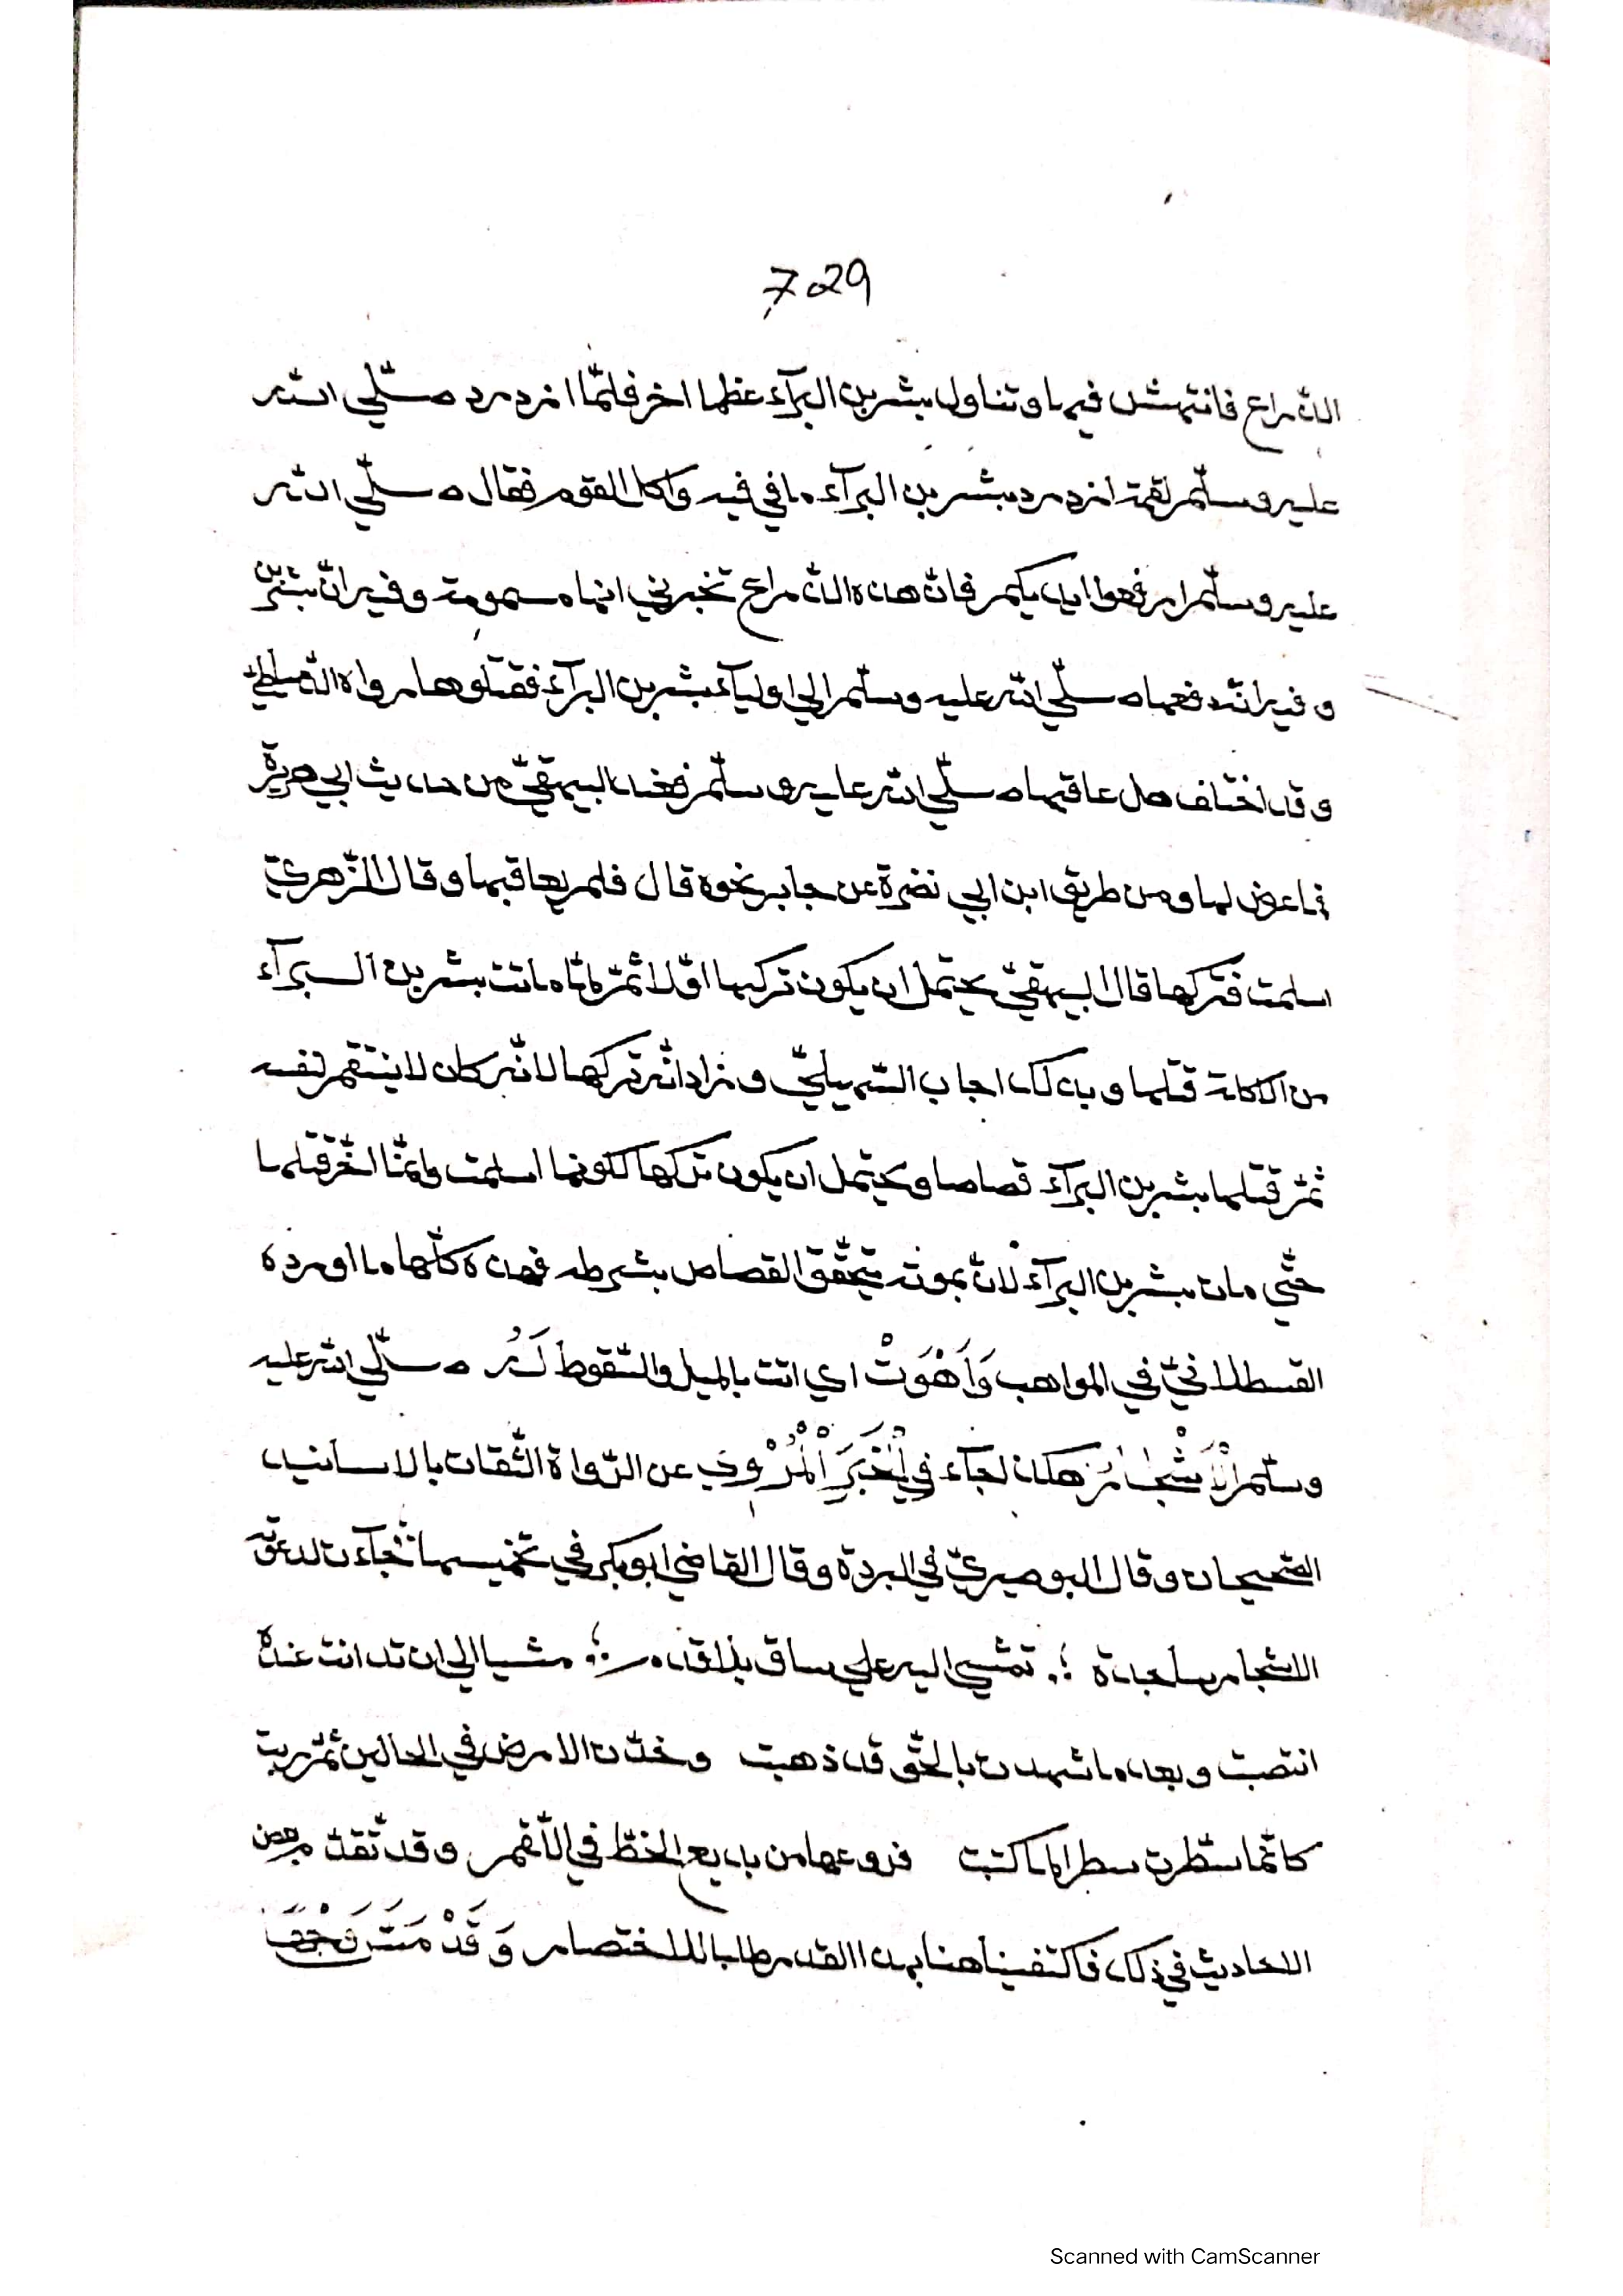 7029
الذراع فانتهش فيها وتناول بشر بن البرآء عظما اخر فلمّا ازدرد صلّي الله
عليه وسلّم لقمة ازدرد بشر بن البرآء ما في فيه واكل القوم فقال صلّي الله
عليه وسلّم ارفعوا ايديكم فانّ هذه الذراع تخبرني انها مسمومة وفيه انّ بشر بن
وفيه انّه دفعها صلّي الله عليه وسلّم الي اوليآء بشر بن البرآء فقتلوها رواه الدمياطيّ
وقد اختلف هل عاقبها صلّي الله عليه وسلّم فعند البيهقيّ من حديث ابي هريرة
فاعرض لها ومن طريق ابن ابي نضرة عن جابر نحوه قال فلم يعاقبها وقال الزّهريّ
اسلمت فتركها قال البيهقيّ يحتمل ان يكون تركها اوّلا ثمّ لمّا مات بشر بن البرآء
من الاكلة قتلها وبذلك اجاب السّهيليّ وزاد انّه تركها لانّه كان لا ينتقم لنفسه
ثمّ قتلها بشر بن البرآء قصاصا ويحتمل ان يكون تركها لكونها اسلمت وانّما اخّر قتلها
حتّي مات بشر بن البرآء لانّ بموته يتحقّق القصاص بشرطه فهذه كلّها ما اورده
القسطلانيّ في المواهب وَاَهْوَتْ اي اتت بالميل والسّقوط لَهُ صلّي الله عليه
وسلّم الْاَشْجَارُ هكذا جآء في الْخَبَرِ الْمَرْوِي عن الرّواة الثّقات بالاسانيد
الصّحيحات وقال البوصيريّ في البردة وقال القاضي ابو بكر في تخميسها جآءت لدعوته
الاشجار ساجدة ؛. تمشي اليه علي ساق بلا قدم ؛. مشيا الي ان تدانت عنده
انتصبت وبعد ما شهدت بالحّق قد ذهبت وخدّت الارض في الحالين ثمّ ربت
كانّما سطّرت سطرا لما كتبت فروعها من بديع الخطّ في اللّقم وقد تقدّم بعض
الاحاديث في ذلك فاكتفينا هنا بهذا القدر طلبا للاختصار وَقَدْ مَتَّ